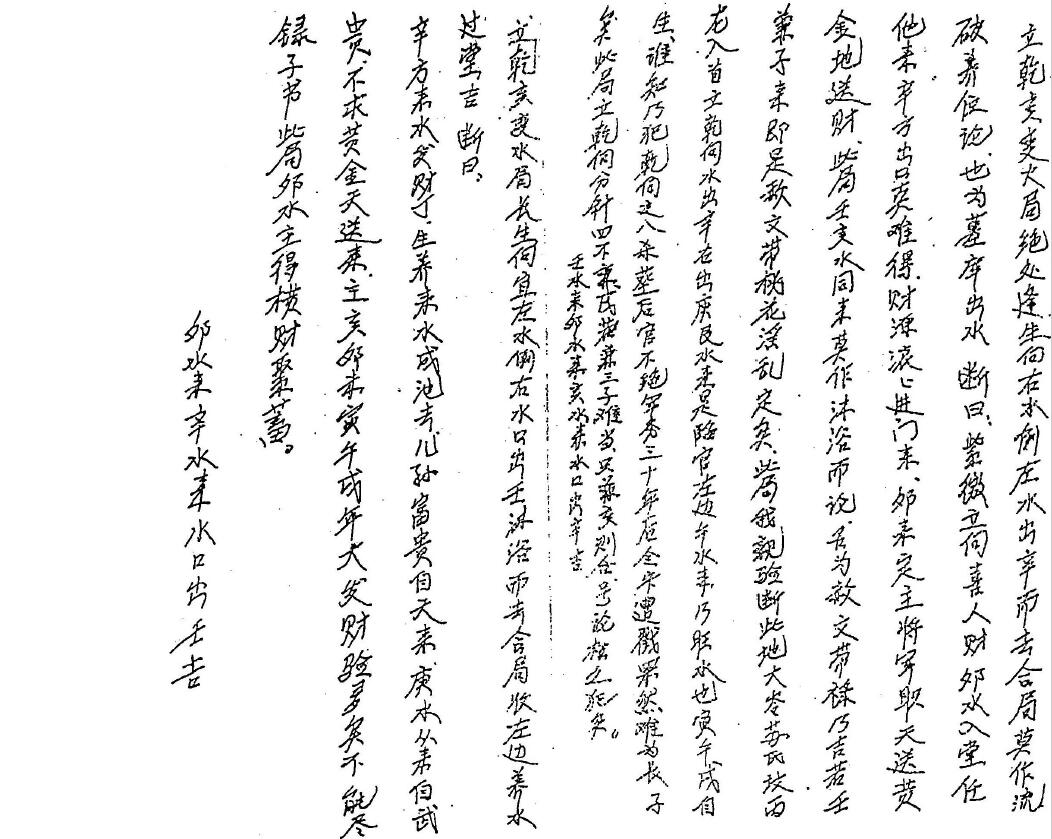 立乾亥变火局绝处逢生向右水倒左水出辛而去合局莫作流
破养位论也为墓库出水 断曰：紫微立向喜人财卯水入堂任
他来辛方出口英难得财源滚滚进门来、卯来定主将军职天送黄
金地送财，此局壬亥水同来莫作沐浴而论、舌为救文带禄乃吉若壬
兼子来即是救文带秘花淫乱定矣此局我亲验断此地大岺苏氏坟西
龙入首立乾向水出辛右出庚艮水来是临官左边午水来乃旺水也寅午戌自
生、谁知乃犯乾向之八杀墓后官不绝算秀三十年后全宋遭戮果然难为长子
矣此局立乾向分针四不兼氏若兼三子难当只兼亥则合号论
壬水来卯水来亥水来水口出辛吉
立乾亥变水局长生向宜左水倒右水口出壬沐浴而去合局收左边养水
过堂吉 断曰、
辛方来水发财丁、生养来水成池去儿孙富贵自天来庚水从来自武
贵、不求黄金天送来、主亥卯未寅午戌年大发财验多矣不能尽
录子书此局卯水主得横财聚蓄。
卯水来辛水来水口出壬吉